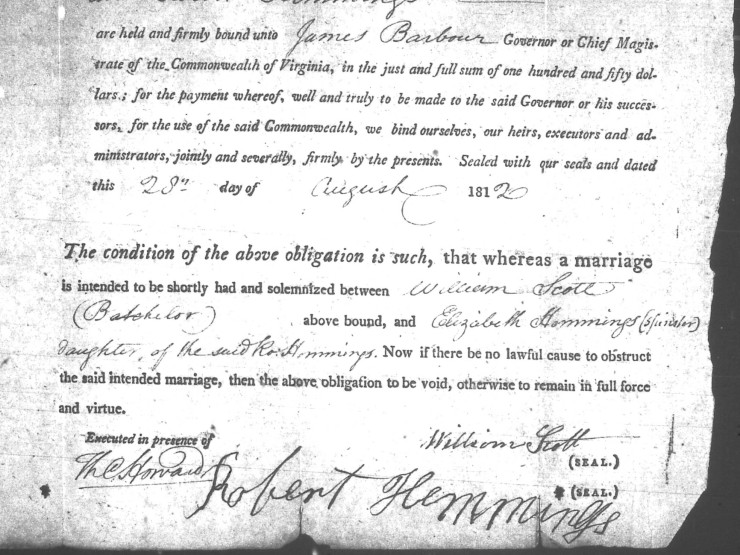 Hemmings
are held and firmly bound unto James Barbour Governor or Chief Magis-
trate of the Commonwealth of Virginia, in the just and full sum of one hundred and fifty dol-
lars; for the payment whereof, well and truly to be made to the said Governor or his succes-
sors, for the use of the said Commonwealth, we bind ourselves, our heirs, executors and ad-
ministrators, jointly and severally, firmly by the presents. Sealed with our seals and dated
this 28th day of August 1812
The condition of the above obligation is such, that whereas a marriage
is intended to be shortly had and solemnized between William Scott
(Batchelor) above bound, and Elizabeth Hemmings (spinster)
daughter of the said Ro. Hemmings. Now if there be no lawful cause to obstruct
the said intended marriage, then the above obligation to be void, otherwise to remain in full force
and virtue.
Executed in presence of
William Scott
(SEAL.)
Th C. Howard
Robert Hemmings
(SEAL.)